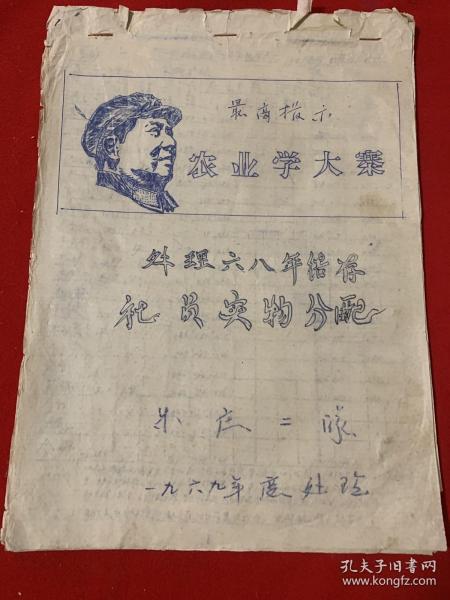 最高指示
农业学大寨
处理六八年结存
社员实物分配
朱庄二队
一九六九年度处理
孔夫子旧书网
www.kongfz.com